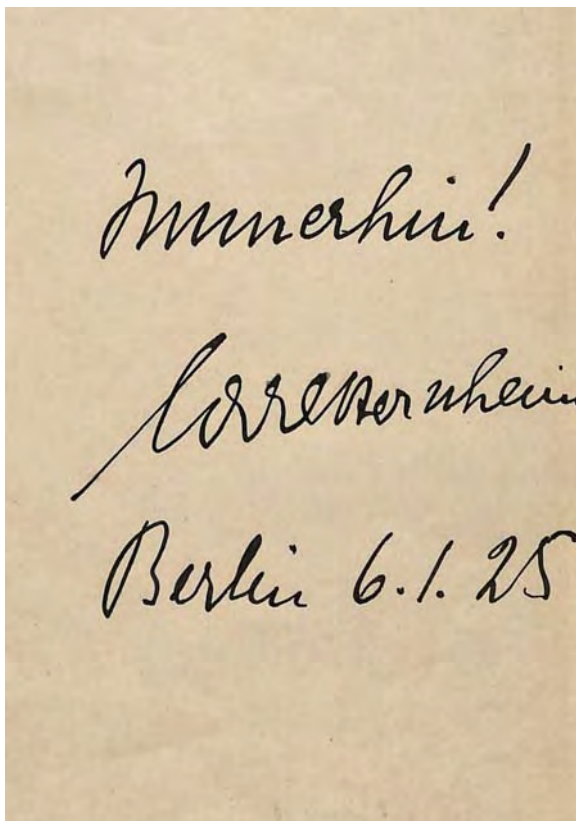 Immerhin!
Carl Sternheim
Berlin 6.1.25